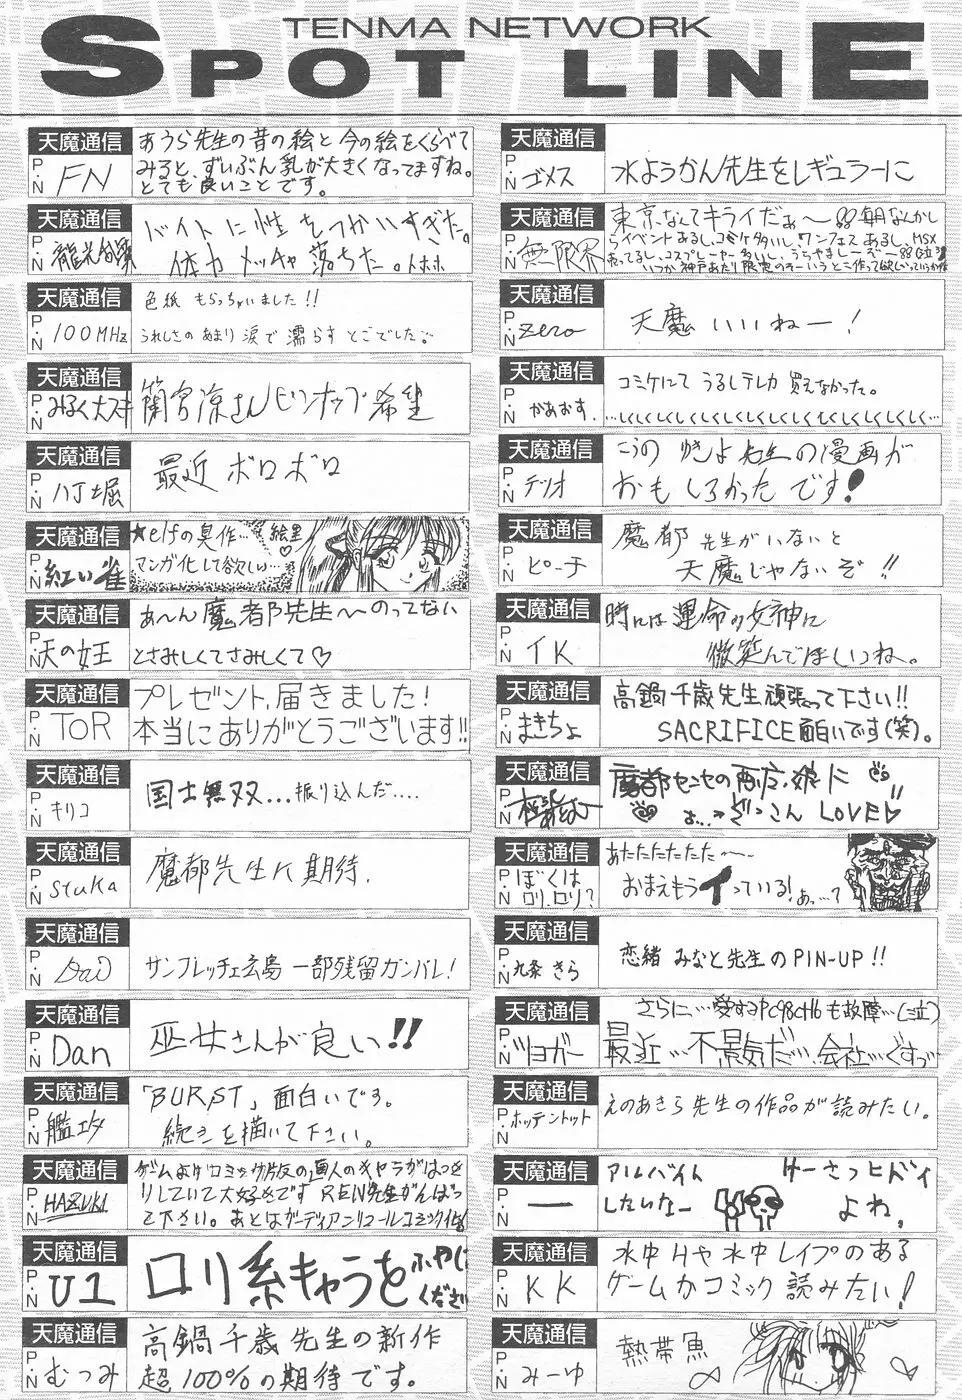 TENMA NETWORK
SPOT LINE
天魔通信
P・N FN
あうら先生の昔の絵と今の絵をくらべて
みると、ずいぶん乳が大きくなってますね。
とても良いことです。
天魔通信
P・N
バイトに性をつかいすぎた。
体力メッチャ落ちた。トホホ
天魔通信
P・N 100MHz
色紙もらっちゃいました!!
うれしさのあまり涙で濡らすとこでした
天魔通信
P・N みるく大スキ
蘭宮涼さんピンナップ希望
天魔通信
P・N 八丁堀
最近ボロボロ
天魔通信
P・N 紅い雀
★elfの臭作… 絵里♡
マンガ化して欲しい…
天魔通信
P・N 天の女王
あ〜ん魔都先生〜のってない
とさみしくてさみしくて♡
天魔通信
P・N TOR
プレゼント、届きました!
本当にありがとうございます!!
天魔通信
P・N キリコ
国士無双...振り込んだ....
天魔通信
P・N stuka
魔都先生に期待.
天魔通信
P・N
サンフレッチェ広島 一部残留ガンバレ!
天魔通信
P・N Dan
巫女さんが良い!!
天魔通信
P・N
「BURST」面白いです。
続きを描いて下さい。
天魔通信
P・N HAZUKI
ゲームよりコミック版の直人のキャラがはっき
りしていて大好きです REN先生がんばっ
て下さい。あとはガーディアンリコールコミック化
天魔通信
P・N U1
ロリ系キャラを ふやして
ください
天魔通信
P・N むつみ
高鍋千歳先生の新作
超100%の期待です。
天魔通信
P・N ゴメス
水ようかん先生をレギュラーに
天魔通信
P・N 無限界
東京なんてキライだぁ〜 毎月なんかし
らイベントあるし、コミケ多いし、ワンフェスあるし、MSX
売ってるし、コスプレーヤー多いし、うらやましーぞー
いつか神戸あたり限定のそーいうとこ作って欲しい
天魔通信
P・N zero
天魔いいねー!
天魔通信
P・N かあおす.
コミケにてうるしテレカ買えなかった。
…しくしくしくしくしくしくしくしくしくしくしく…
天魔通信
P・N テリオ
こうのゆきよ先生の漫画が
おもしろかったです!
天魔通信
P・N ピーチ
魔都先生がいないと
天魔じゃないぞ!!
天魔通信
P・N IK
時には運命の女神に
微笑んでほしいね。
天魔通信
P・N まきちょ
高鍋千歳先生頑張って下さい!!
SACRIFICE面白いです(笑)。
天魔通信
P・N
魔都センセの 娘に
ぞっこん LOVE♡
天魔通信
P・N ぼくはロリ.ロリ?
あたたたたたた〜
おまえもうイっている! あっ…て
天魔通信
P・N 九条きら
恋緒みなと先生のPIN-UP!!
天魔通信
P・N ツヨガー
さらに…愛するPC98CH6も故障…(泣)
最近…不景気だ…会社…ぐすっ
天魔通信
P・N ホッテントット
えのあきら先生の作品が読みたい。
天魔通信
P・N 一
アルバイト
したいなー
けーさつヒドイ
よね。
天魔通信
P・N KK
水中Hや水中レイプのある
ゲームかコミック読みたい!
天魔通信
P・N みーゆ
熱帯魚